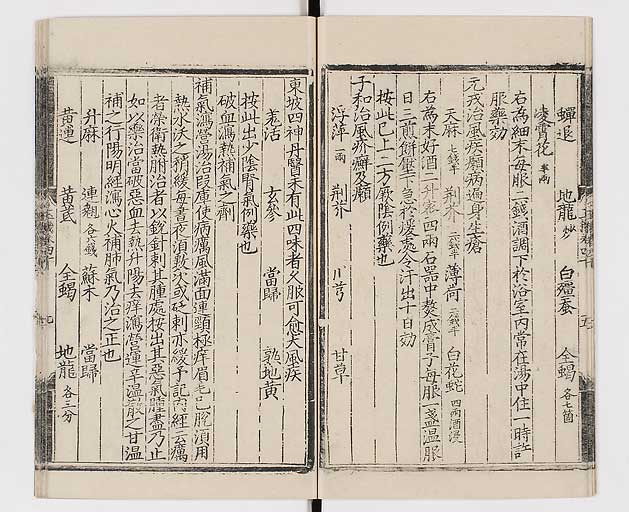 蟬退 地龍炒 白殭蚕 全蝎各七箇
凌霄花半兩
右為細末每服二錢酒調下於浴室內常在湯中住一時許
服藥効
元戎治風疾癩病遍身生瘡
天麻七錢半 荆芥二錢半 薄荷二錢半 白花蛇四兩酒浸
右為末好酒二升蜜四兩石器中熬成膏子每服一盞温服
日三煎餅壓下急於煖處令汗出十日効
按此已上二方厥陰例藥也
子和治風疥癬及癩
浮萍一兩 荆芥 川芎 甘草
東坡四神丹醫未有此四味者久服可愈大風疾
羌活 玄參 當歸 熟地黄
按此出少陰腎氣例藥也
破血瀉熱補氣之劑
補氣瀉營湯治段庫使病癘風滿面連頸極痒眉毛已脫湏用
熱水沃之稍緩每晝夜湏數次或砭刺亦緩予記內經云癘
者榮衛熱胕治者以銳針刺其腫處按出其惡氣腫盡乃止
如以藥治當破惡血去熱升陽去痒瀉營運辛温散之甘温
補之行陽明經瀉心火補肺氣乃治之正也
升麻 連翹各六錢 蘇木 當歸
黄連 黄芪 全蝎 地龍各三分